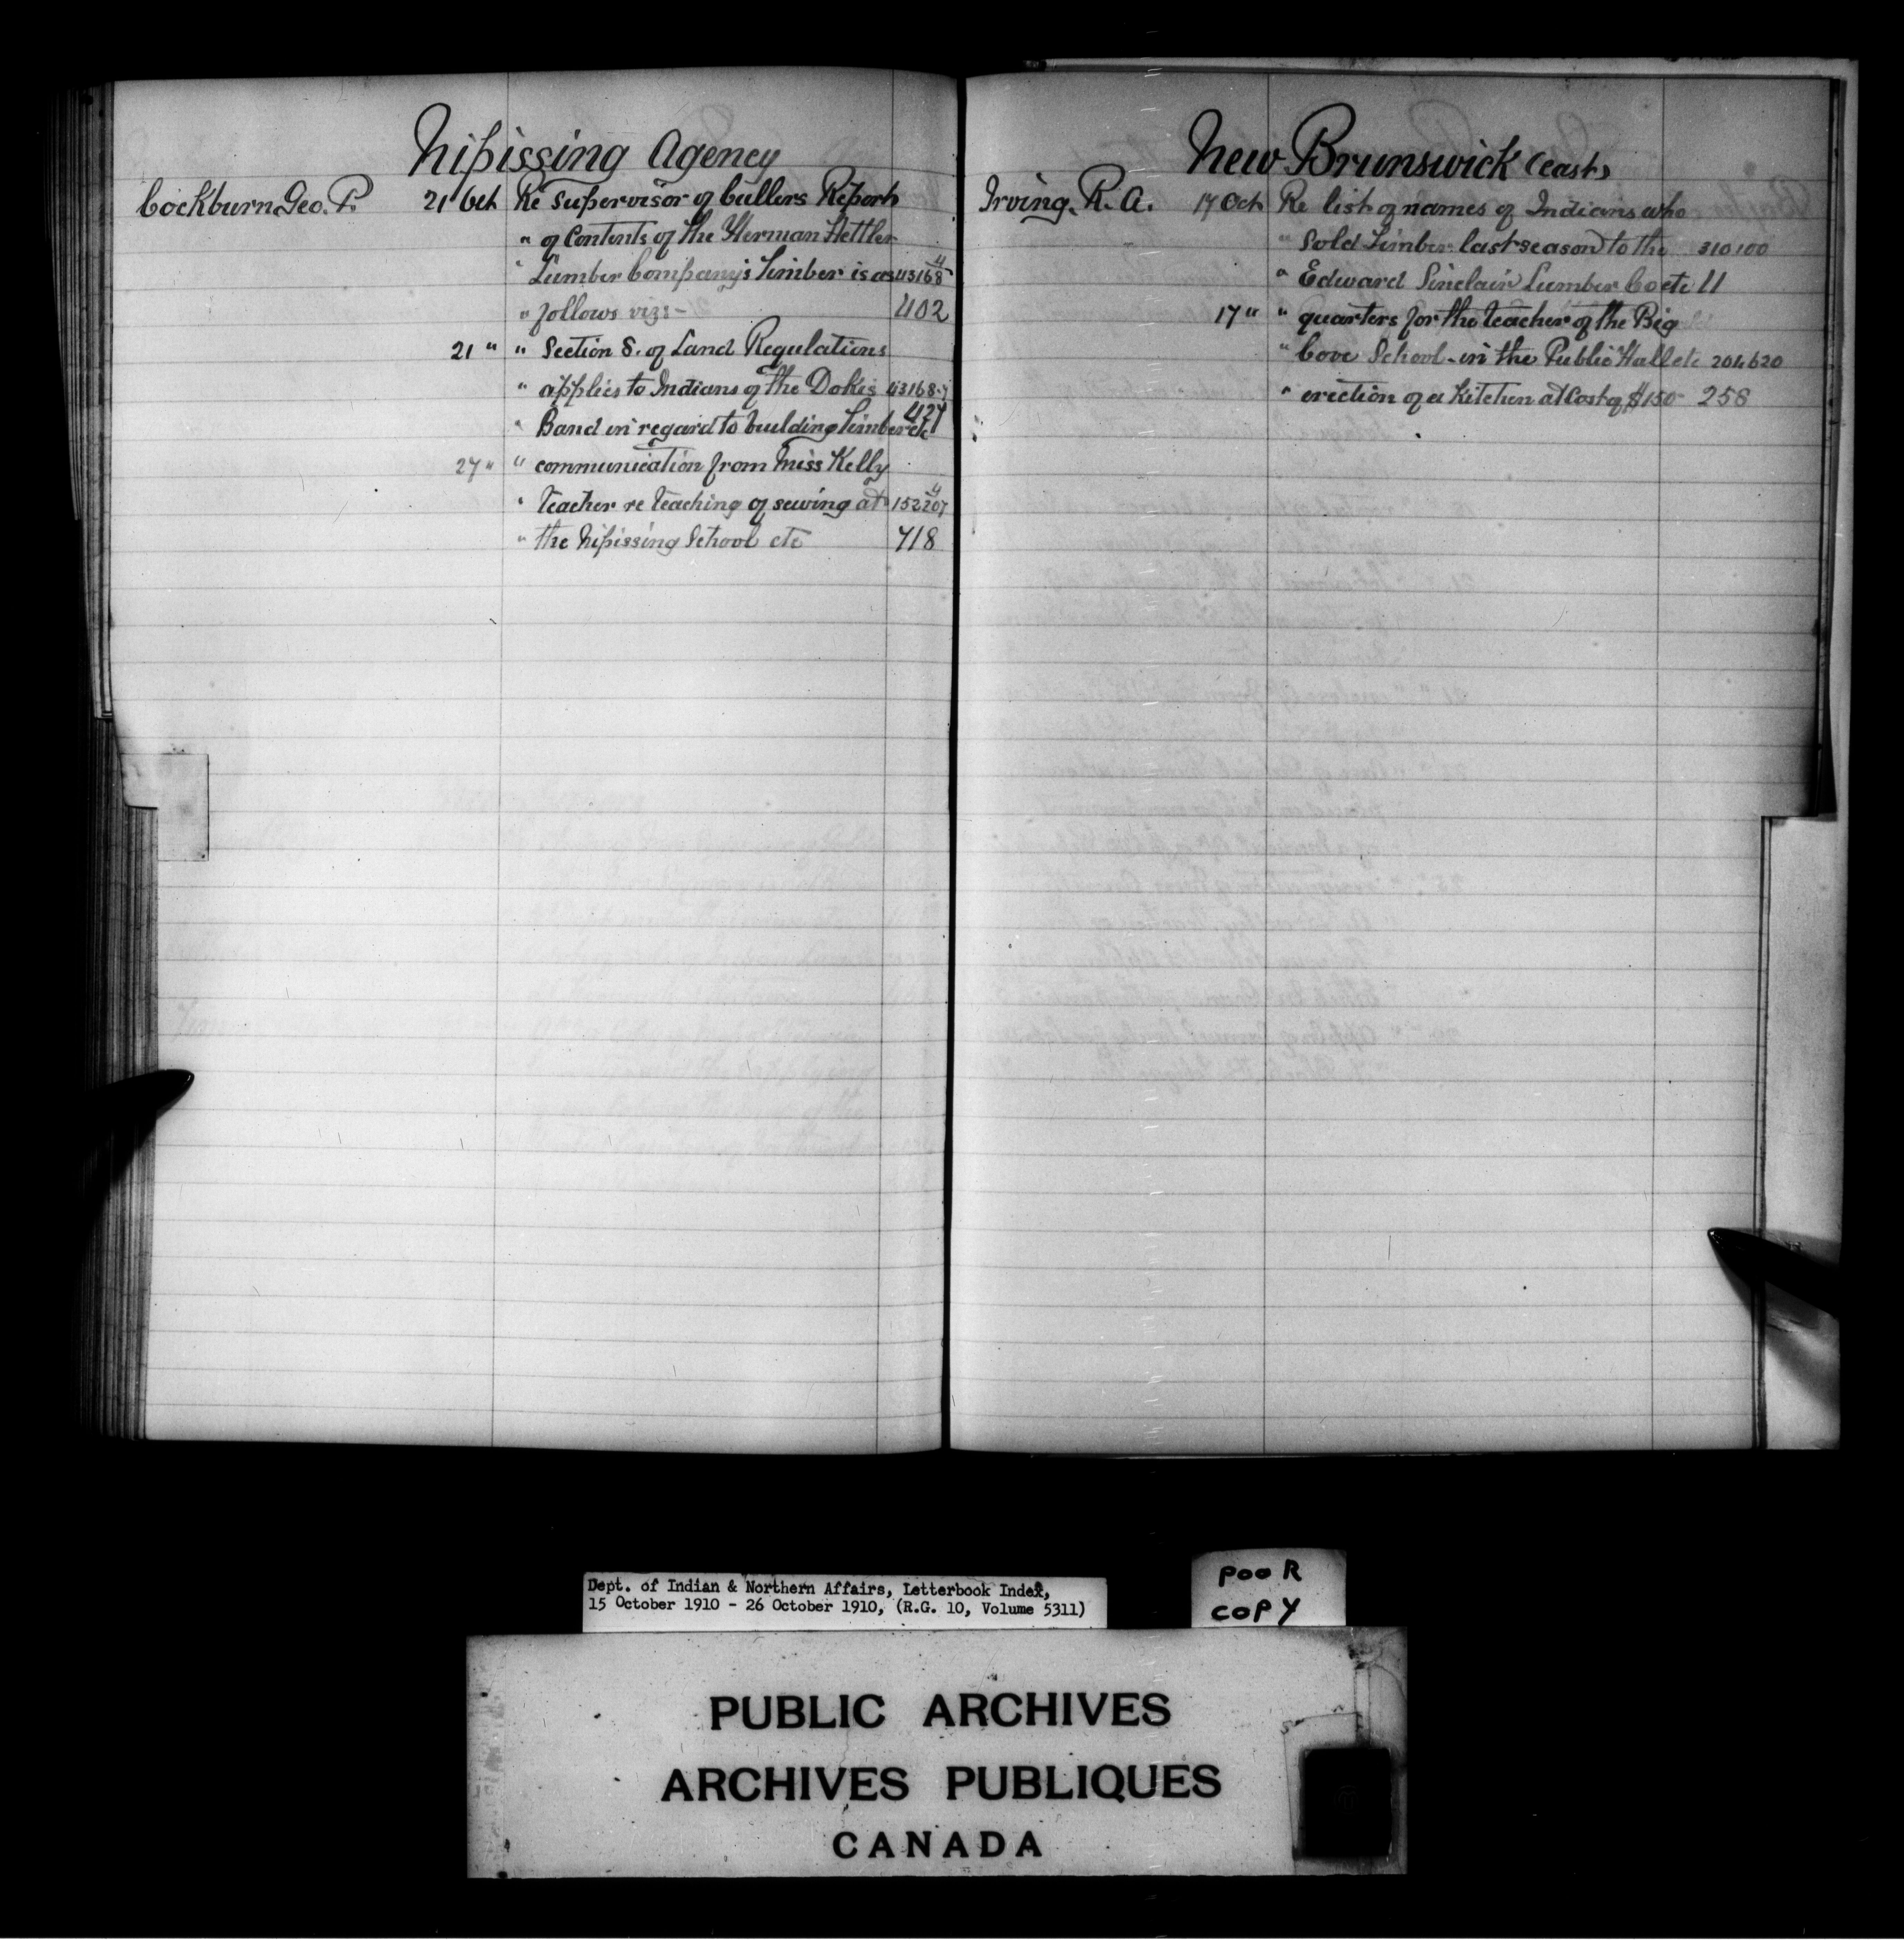 Nipissing Agency
Cockburn Geo. P. 21 Oct Re Supervisor of Cullers Report
" of Contents of the Herman Hettler
" Lumber Company's Timber is as 43168-4
" follows viz:- 402
21 " " Section 8. of Land Regulations
" applies to Indians of the Dokis 43168-7
" Band in regard to building Timber etc 427
27 " " communication from Miss Kelly
" teacher re teaching of sewing at 152207-4
" the Nipissing School etc 718
New Brunswick (east)
Irving. R. A. 17 Oct Re list of names of Indians who
" Sold Timber last season to the 310100
" Edward Sinclair Lumber Co etc 11
17 " " quarters for the teacher of the Big
" Cove School in the Public Hall etc 204620
" erection of a Kitchen at Cost of $150- 258
Dept. of Indian & Northern Affairs, Letterbook Index,
15 October 1910 - 26 October 1910, (R.G. 10, Volume 5311)
POOR
COPY
PUBLIC ARCHIVES
ARCHIVES PUBLIQUES
CANADA